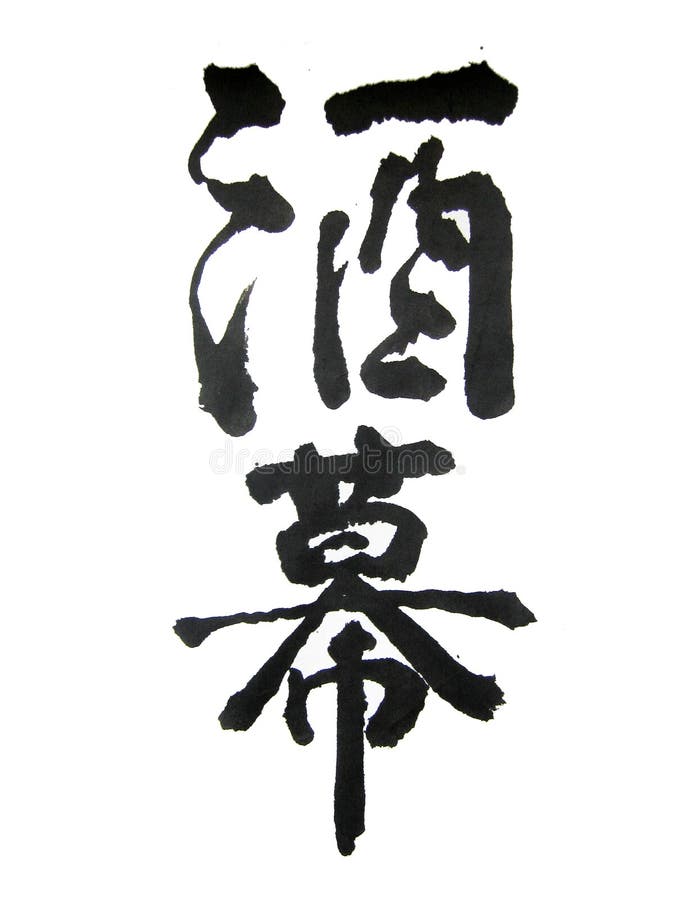 酒幕
dreamstime